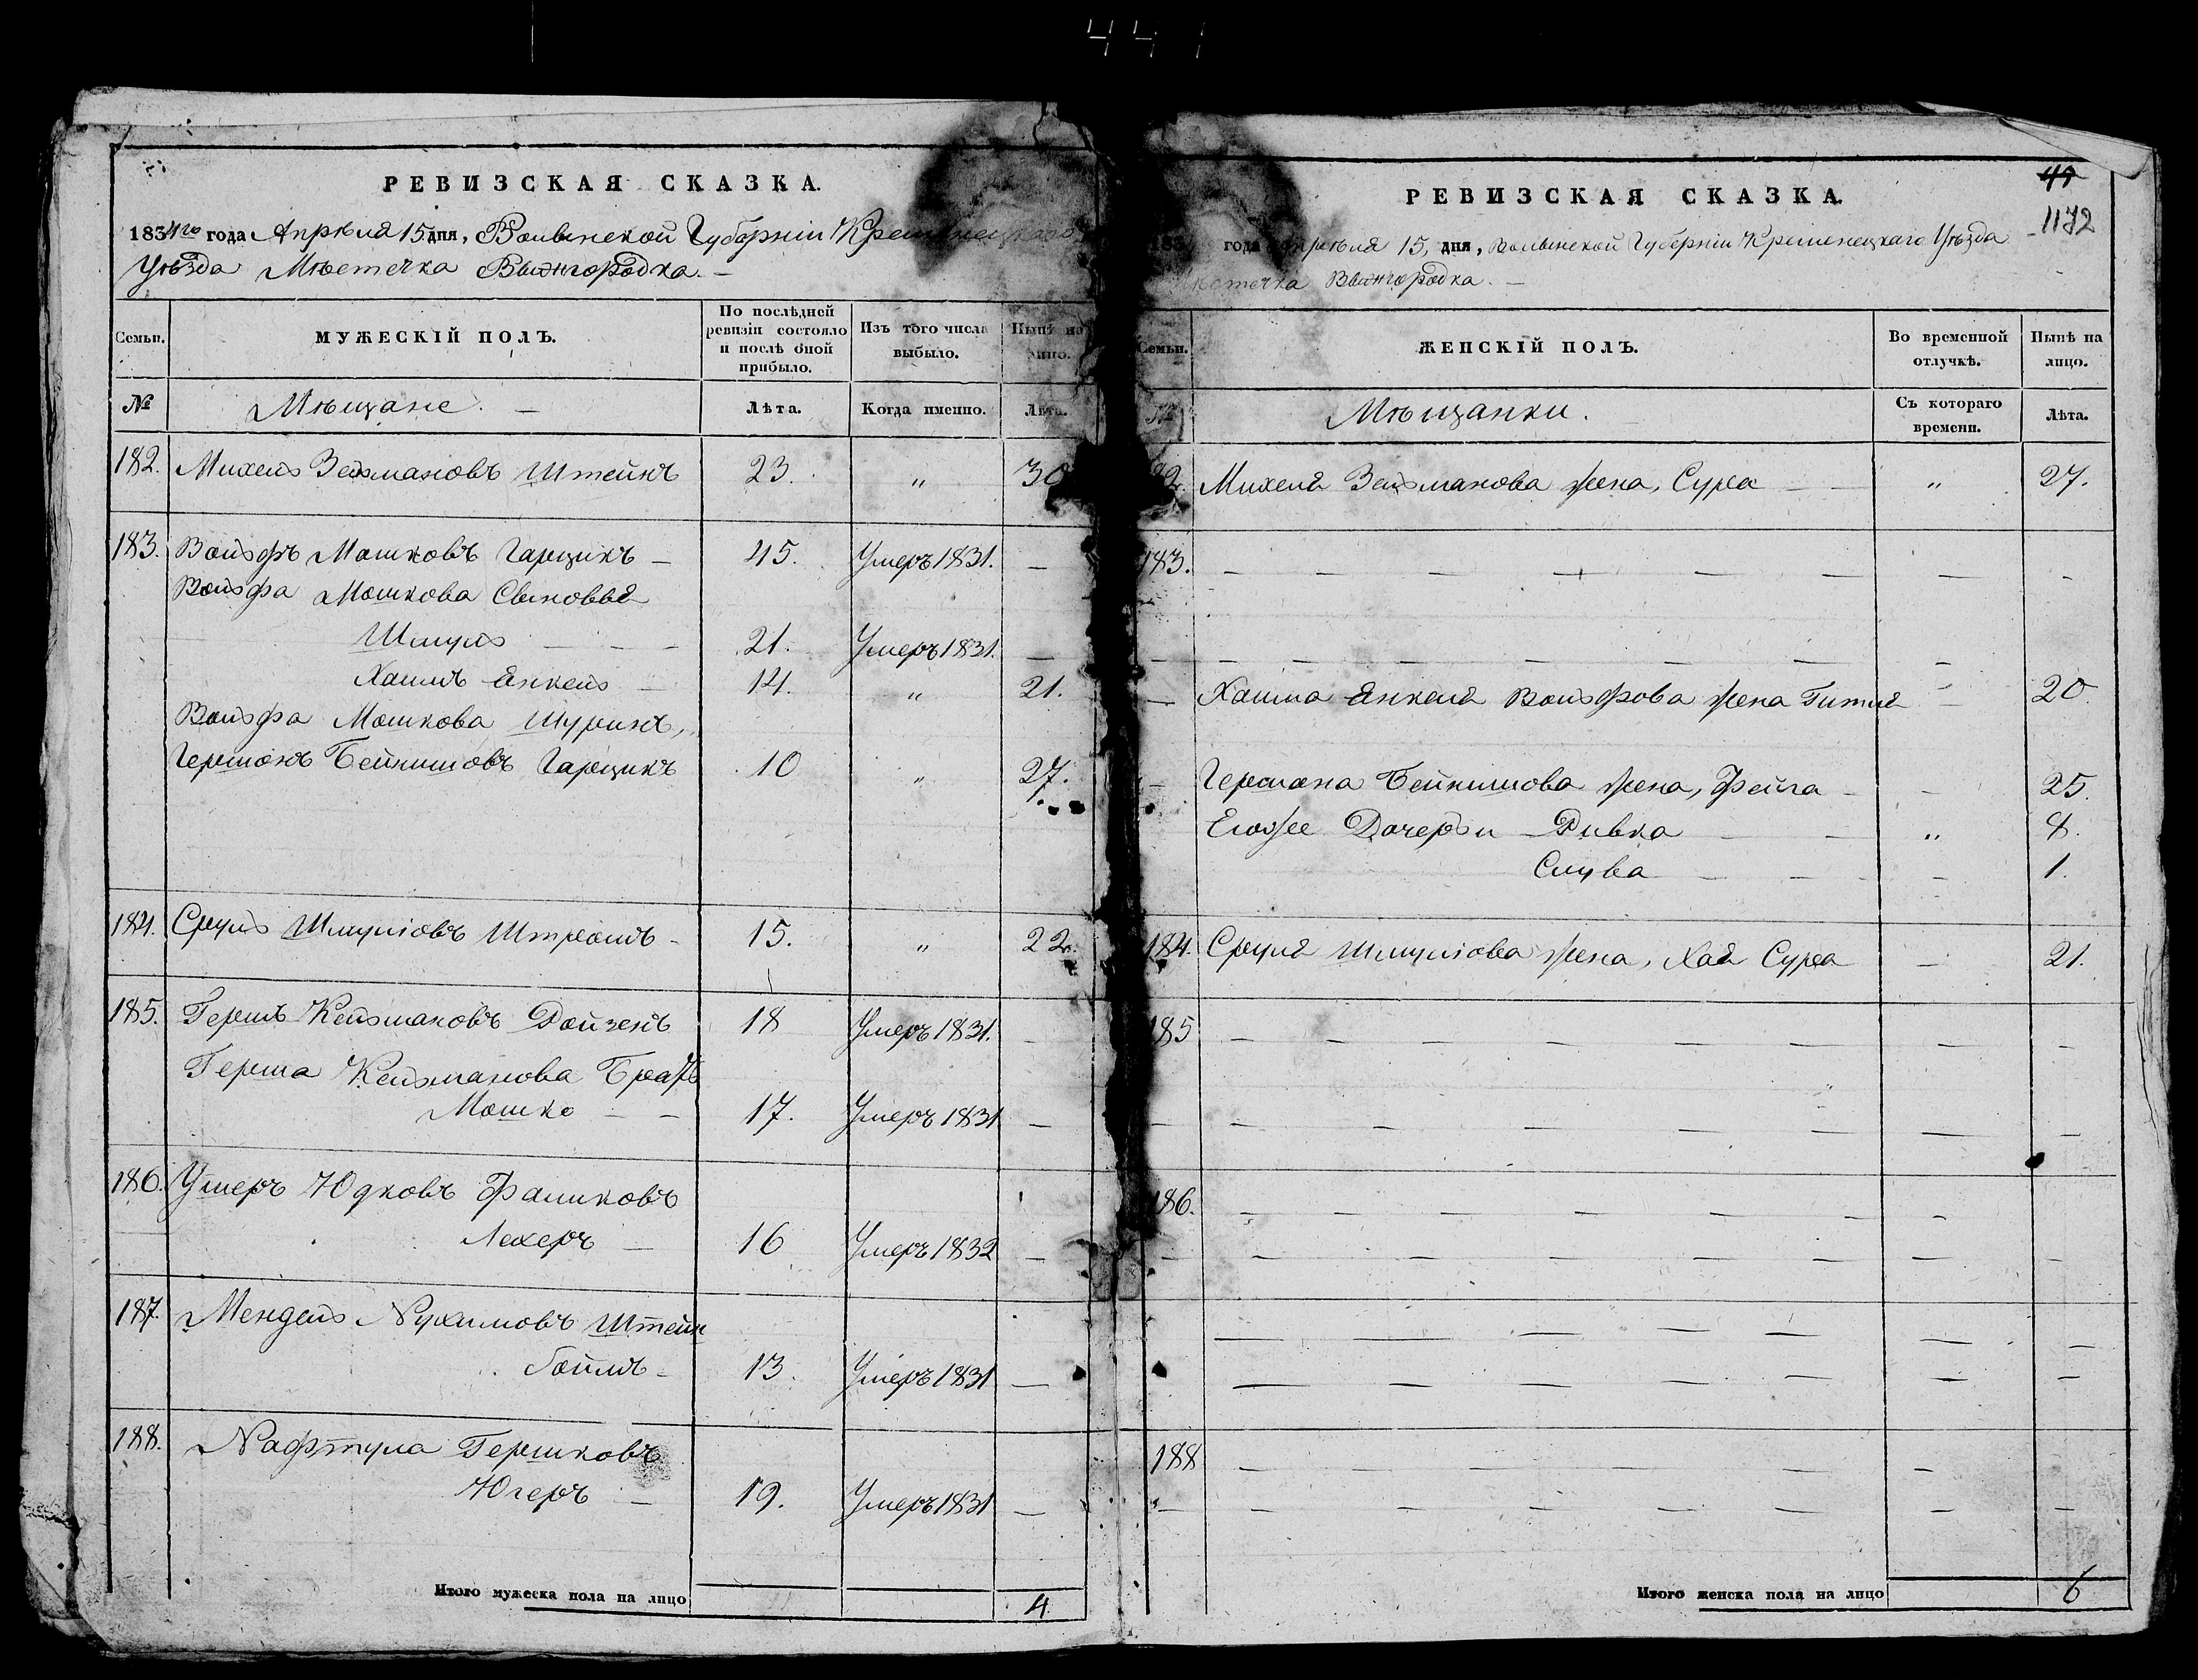 441
РЕВИЗСКАЯ СКАЗКА.
1834го года Апрѣля 15 дня, Волынской Губерніи Кременецкаго
Уѣзда Мѣстечка Вышгородка. —
Семьи. МУЖЕСКІЙ ПОЛЪ. По послѣдней ревизіи состояло и послѣ оной прибыло. Изъ того числа выбыло. Нынѣ на лицо.
№ Мѣщане. — Лѣта. Когда именно. Лѣта.
182. Михель Зельмановъ Штейнъ 23. " 30
183. Вольфъ Мошковъ Гарцикъ — 45. Умеръ 1831. —
Вольфа Мошкова Сыновья
Шмуль — — — 21. Умеръ 1831. —
Хаимъ Янкель — 14. " 21.
Вольфа Мошкова Шуринъ,
Гершонъ Бейнишовъ Гарцикъ 10 " 27.
184. Сруль Шмуліовъ Штромъ - 15. " 22.
185. Гершъ Кельмановъ Ройзенъ 18 Умеръ 1831. —
Герша Кельманова Братъ
Мошко — — 17. Умеръ 1831 —
186. Умеръ Юдковъ Фаликовъ
Лехеръ — 16 Умеръ 1832 —
187. Мендель Нухимовъ Штейн
Гоймъ - 13. Умеръ 1831 —
188. Нафтула Гершковъ
Югеръ — 19. Умеръ 1831 —
Итого мужеска пола на лицо 4.
РЕВИЗСКАЯ СКАЗКА.
49
1172
183 года Апрѣля 15, дня, Волынской Губерніи Кременецкаго Уѣзда
Мѣстечка Вышгородка. —
Семьи. ЖЕНСКІЙ ПОЛЪ. Во временной отлучкѣ. Нынѣ на лицо.
№ Мѣщанки. Съ котораго времени. Лѣта.
182. Михеля Зельманова жена, Сура — " 27.
183. — — — — — — — -
— — — — — — — —
— Хаима Янкеля Вольфова жена Гитля — 20.
— Гершона Бейнишова жена, Фейга — — 25.
Егожее Дочери Ривка — — " 8.
Слува — — — — 1.
184. Сруля Шмуліова жена, Хая Сура — 21.
185 — — — — — — — -
— — — — — — — —
186. — — — — — — —
— — — — — — — — -
— — — — — — —
— — — — — — —
188 — — — — — —
— — — — — — — —
Итого женска пола на лицо 6